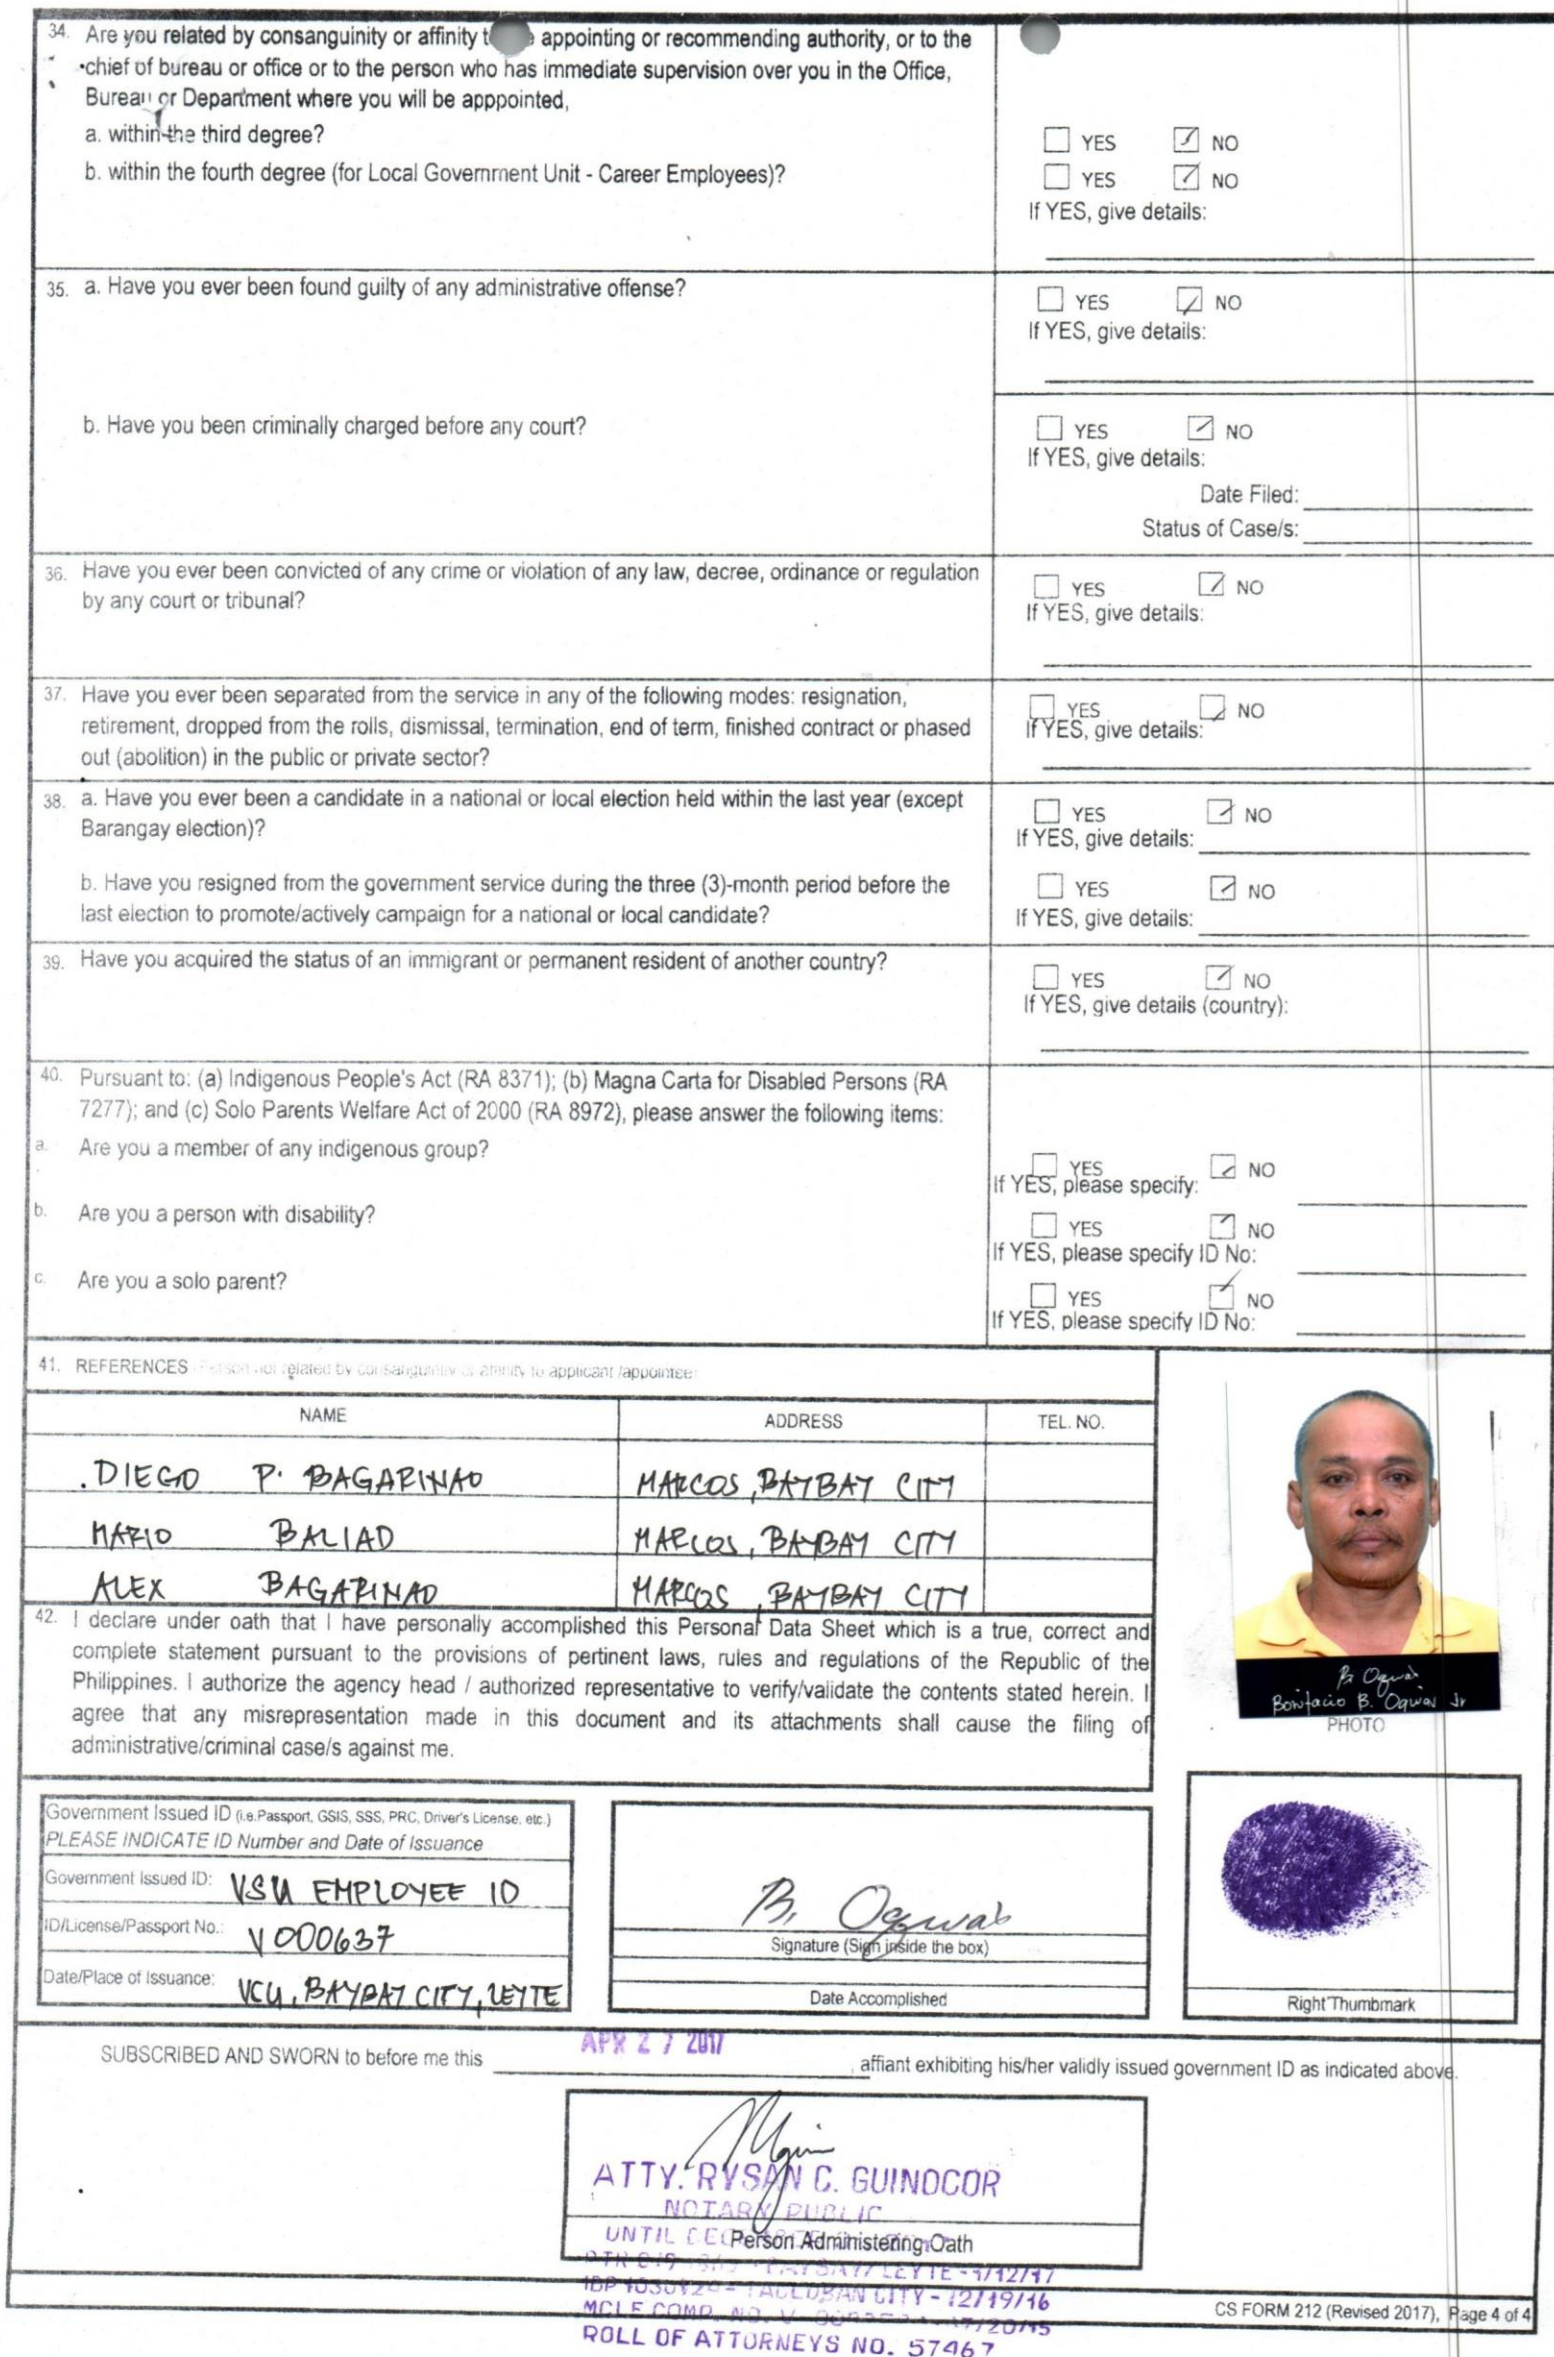 34. Are you related by consanguinity or affinity appointing or recommending authority, or to the
chief of bureau or office or to the person who has immediate supervision over you in the Office,
Bureau or Department where you will be apppointed,
a. within the third degree?
YES NO
b. within the fourth degree (for Local Government Unit - Career Employees)?
YES NO
If YES, give details:
35. a. Have you ever been found guilty of any administrative offense?
YES NO
If YES, give details:
b. Have you been criminally charged before any court?
YES NO
If YES, give details:
Date Filed:
Status of Case/s:
36. Have you ever been convicted of any crime or violation of any law, decree, ordinance or regulation
by any court or tribunal?
YES NO
If YES, give details:
37. Have you ever been separated from the service in any of the following modes: resignation,
retirement, dropped from the rolls, dismissal, termination, end of term, finished contract or phased
out (abolition) in the public or private sector?
YES NO
If YES, give details:
38. a. Have you ever been a candidate in a national or local election held within the last year (except
Barangay election)?
YES NO
If YES, give details:
b. Have you resigned from the government service during the three (3)-month period before the
last election to promote/actively campaign for a national or local candidate?
YES NO
If YES, give details:
39. Have you acquired the status of an immigrant or permanent resident of another country?
YES NO
If YES, give details (country):
40. Pursuant to: (a) Indigenous People's Act (RA 8371); (b) Magna Carta for Disabled Persons (RA
7277); and (c) Solo Parents Welfare Act of 2000 (RA 8972), please answer the following items:
a. Are you a member of any indigenous group?
YES NO
If YES, please specify:
b. Are you a person with disability?
YES NO
If YES, please specify ID No:
c. Are you a solo parent?
YES NO
If YES, please specify ID No:
41. REFERENCES related by consanguinity affinity to applicant /appointee
NAME ADDRESS TEL. NO.
DIEGO P. BAGARINAO MARCOS, BAYBAY CITY
MARIO BALIAD MARCOS, BAYBAY CITY
ALEX BAGARINAO MARCOS, BAYBAY CITY
42. I declare under oath that I have personally accomplished this Personal Data Sheet which is a true, correct and
complete statement pursuant to the provisions of pertinent laws, rules and regulations of the Republic of the
Philippines. I authorize the agency head / authorized representative to verify/validate the contents stated herein. I
agree that any misrepresentation made in this document and its attachments shall cause the filing of
administrative/criminal case/s against me.
B. Ogwas
Bonifacio B. Ogwas Jr
PHOTO
Government Issued ID (i.e.Passport, GSIS, SSS, PRC, Driver's License, etc.)
PLEASE INDICATE ID Number and Date of Issuance
Government Issued ID: VSU EMPLOYEE ID
ID/License/Passport No.: V000637
Date/Place of Issuance: VCU, BAYBAY CITY, LEYTE
B. Ogwas
Signature (Sign inside the box)
Date Accomplished
Right Thumbmark
APR 27 2017
SUBSCRIBED AND SWORN to before me this , affiant exhibiting his/her validly issued government ID as indicated above.
ATTY. RYSAN C. GUINOCOR
NOTARY PUBLIC
UNTIL
Person Administering Oath
LEYTE - 1/12/17
TACLOBAN CITY - 12/19/16
MCLE COMP. NO. V
ROLL OF ATTORNEYS NO. 57467
CS FORM 212 (Revised 2017), Page 4 of 4